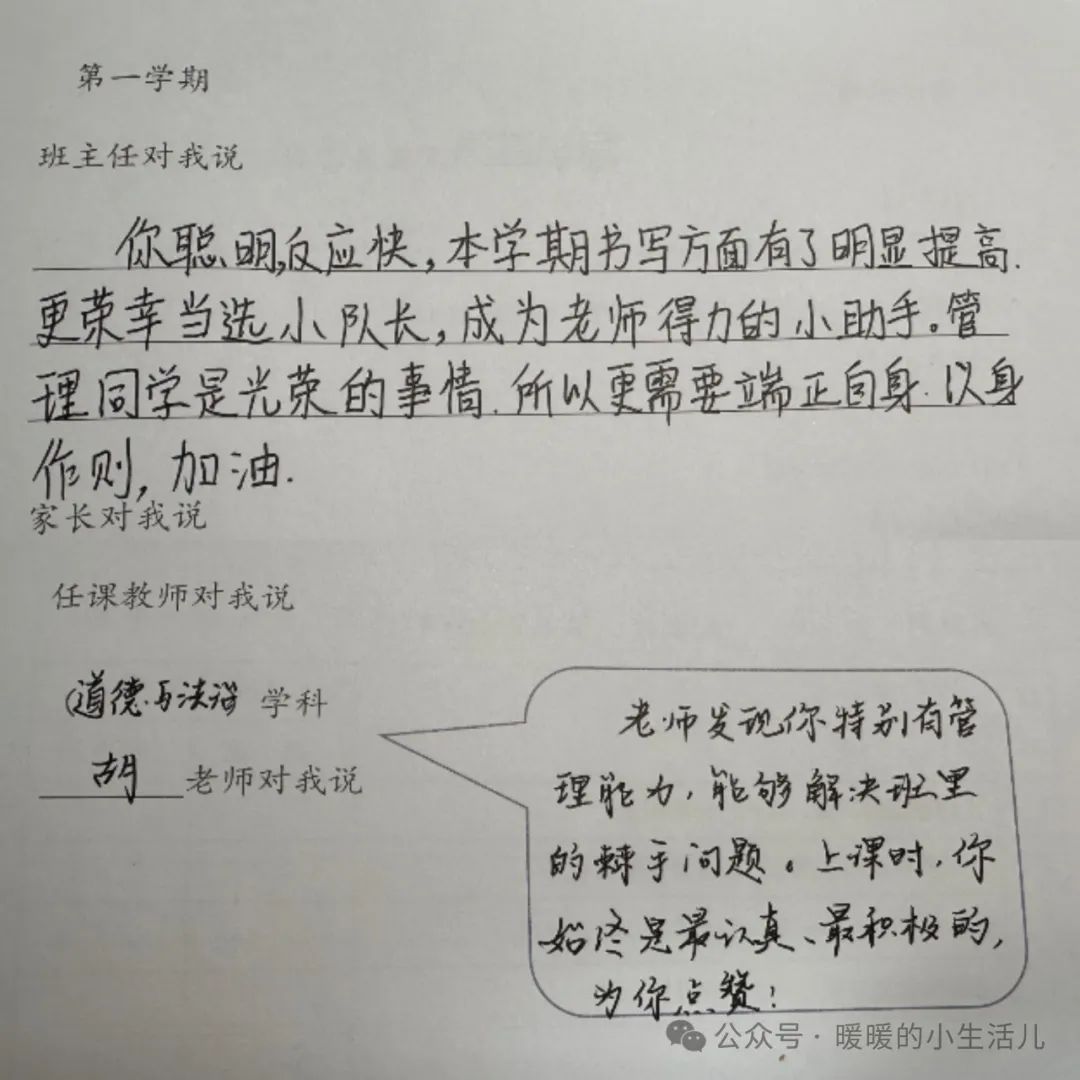 第一学期
班主任对我说
你聪明,反应快,本学期书写方面有了明显提高.
更荣幸当选小队长,成为老师得力的小助手。管
理同学是光荣的事情.所以更需要端正自身.以身
作则,加油.
家长对我说
任课教师对我说
道德与法治 学科
胡 老师对我说
老师发现你特别有管
理能力,能够解决班里
的棘手问题。上课时,你
始终是最认真、最积极的,
为你点赞!
公众号·暖暖的小生活儿